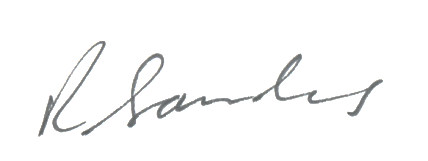 R Sandes